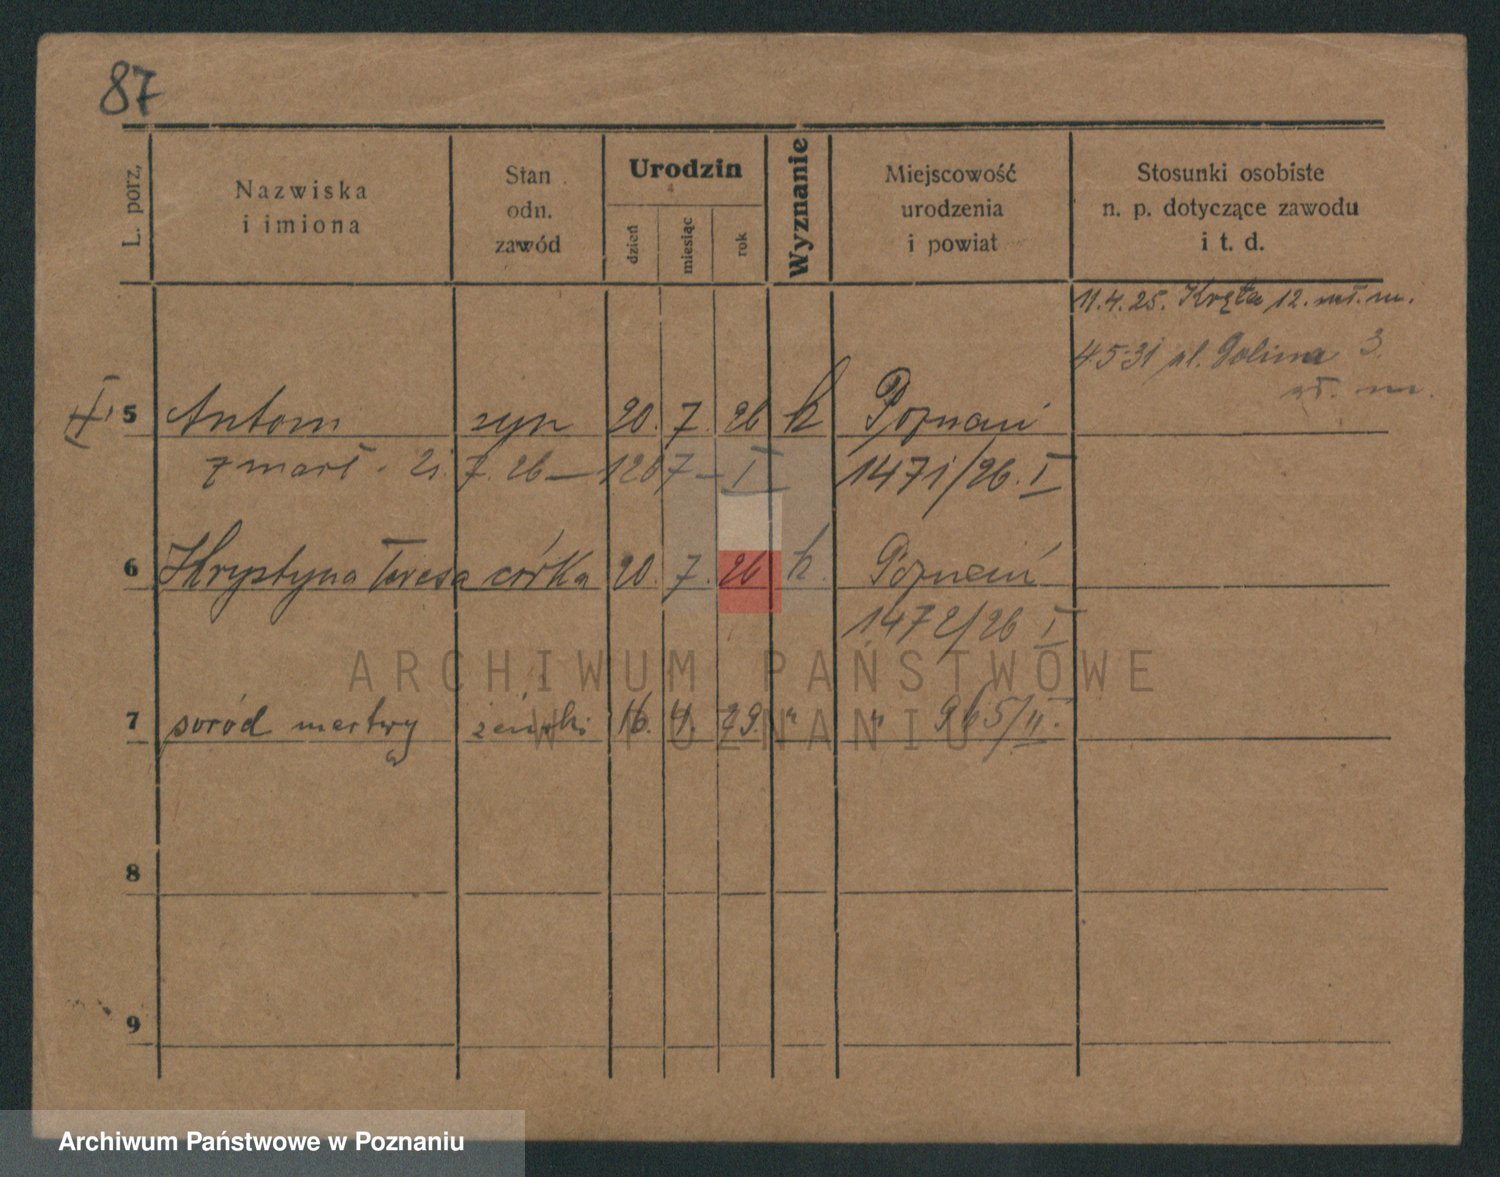 87
L. porz.
Nazwiska
i imiona
Stan
odn.
zawód
Urodzin
dzień
miesiąc
rok
Wyznanie
Miejscowość
urodzenia
i powiat
Stosunki osobiste
n. p. dotyczące zawodu
i t. d.
11.4.25. Kręta 12. mł. m.
4.5.31 ul. 3.
m.
5 Antoni syn 20. 7. 26 k Poznań
zmarł. 21. 7. 26 — 1267 — I 1471/26. I
6 Krystyna Teresa córka 20. 7. 26 k. Poznań
1472/26 I
ARCHIWUM PAŃSTWOWE
W POZNANIU
7 poród martwy żeński 16. 4. 29. " " 965/II.
8
9
Archiwum Państwowe w Poznaniu